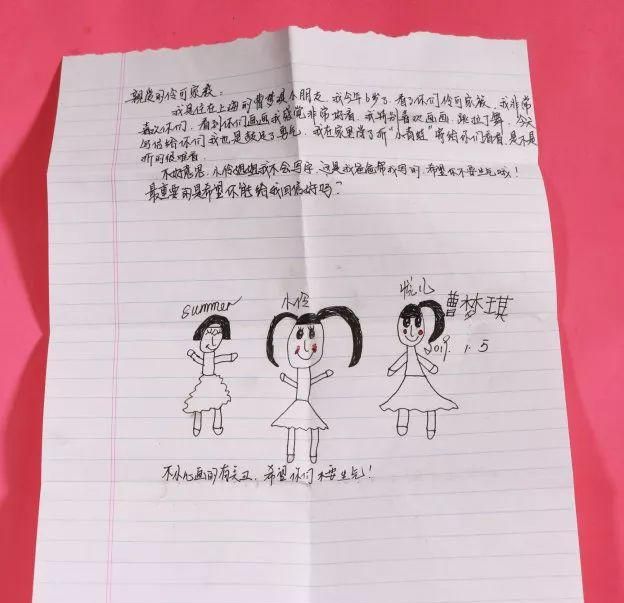 亲爱的伶可家族:
我是住在上海的曹梦琪小朋友,我今年6岁了,看了你们伶可家族,我非常
喜欢你们,看到你们画画我感觉非常好看,我特别喜欢画画,跳拉丁舞,今天
写信给你们我也是鼓足了勇气,我在家里给了折"小青蛙"寄给你们看看,是不是
折的很难看.
不好意思,小伶姐姐我不会写字,这是我爸爸帮我写的,希望你不要生气哦!
最重要的是希望你能给我回信好吗?
summer
小伶
悦儿
曹梦琪
2019.1.5
不小心画的有点丑,希望你们不要生气!